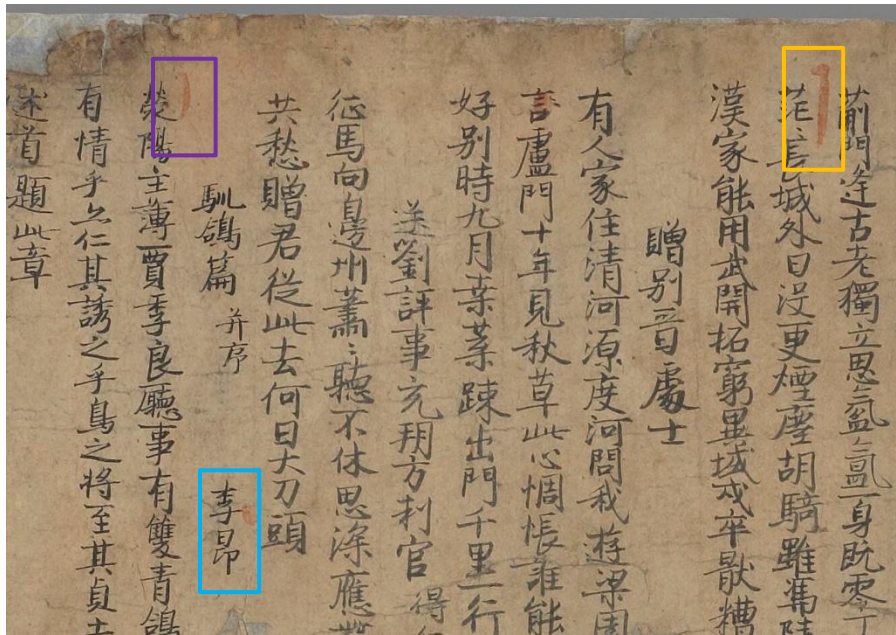 薊門逢古老獨立思氤氳一身既零丁
茫城外日没更煙塵胡騎雖馮陵
漢家能用武開拓窮異域戍卒猒糟
贈別晉處士
有人家住清河源度河問我遊梁園
言盧門十年見秋草此心惆悵誰能
好别時九月葉蓁踈出門千里一行
送劉評事充朔方判官
得
征馬向邊州蕭〻聽不休思深應
共愁贈君從此去何日大刀頭
馴鴿篇 并序
李昂
滎陽主薄賈季良廳事有雙青鴿
有情乎仁其誘之乎鳥之將至其貞
述首題此章